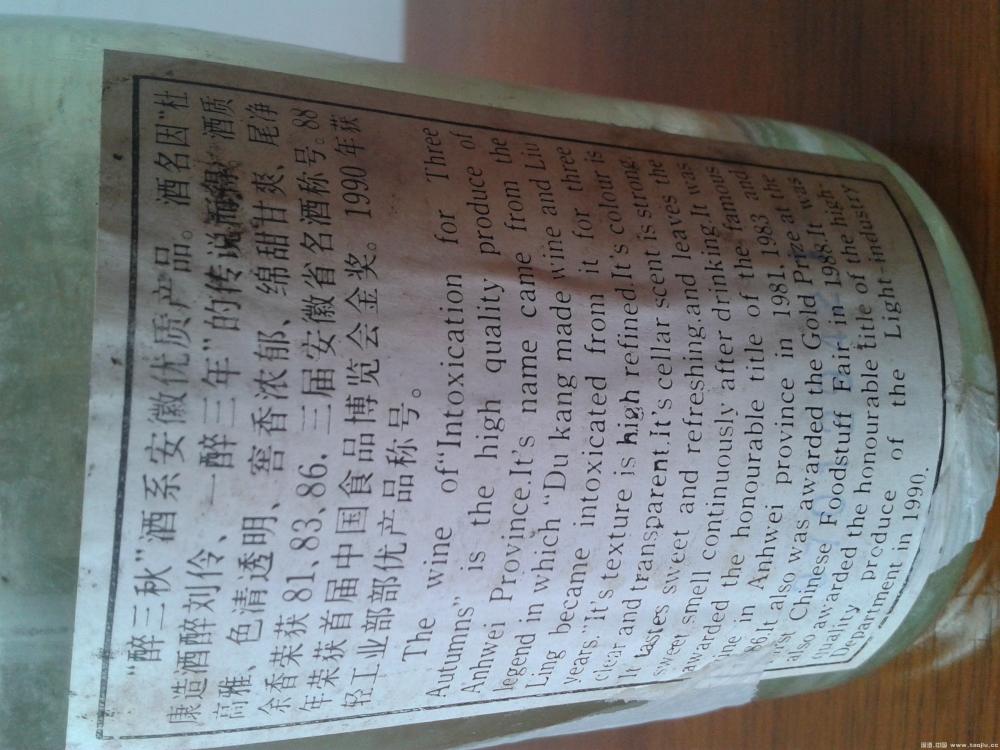 “醉三秋”酒系安徽优质产品。酒名因“杜
康造酒醉刘伶、一醉三年”的传说而得。酒质
高雅、色清透明、窖香浓郁、绵甜甘爽、尾净
余香荣获81、83、86.三届安徽省名酒称号。88
年荣获首届中国食品博览会金奖。1990年获
轻工业部部优产品称号。
The wine of“Intoxication for Three
Autumns” is the high quality produce of
Anhwei Province.It's name came from the
legend in which “Du kang made wine and Liu
Ling became intoxicated from it for three
years.”It's texture is high refined.It's colour is
clear and transparent.It's cellar scent is strong
It tastes sweet and refreshing.and leaves the
sweet smell continuously after drinking.It was
awarded the honourable title of the famous
ine in Anhwei province in 1981. 1983 and
86.it also was awarded the Gold Prize at the
rst Chinese Foodstuff Fair in 1988.It was
also awarded the honourable title of the high-
quality produce of the Light-industry
Department in 1990.